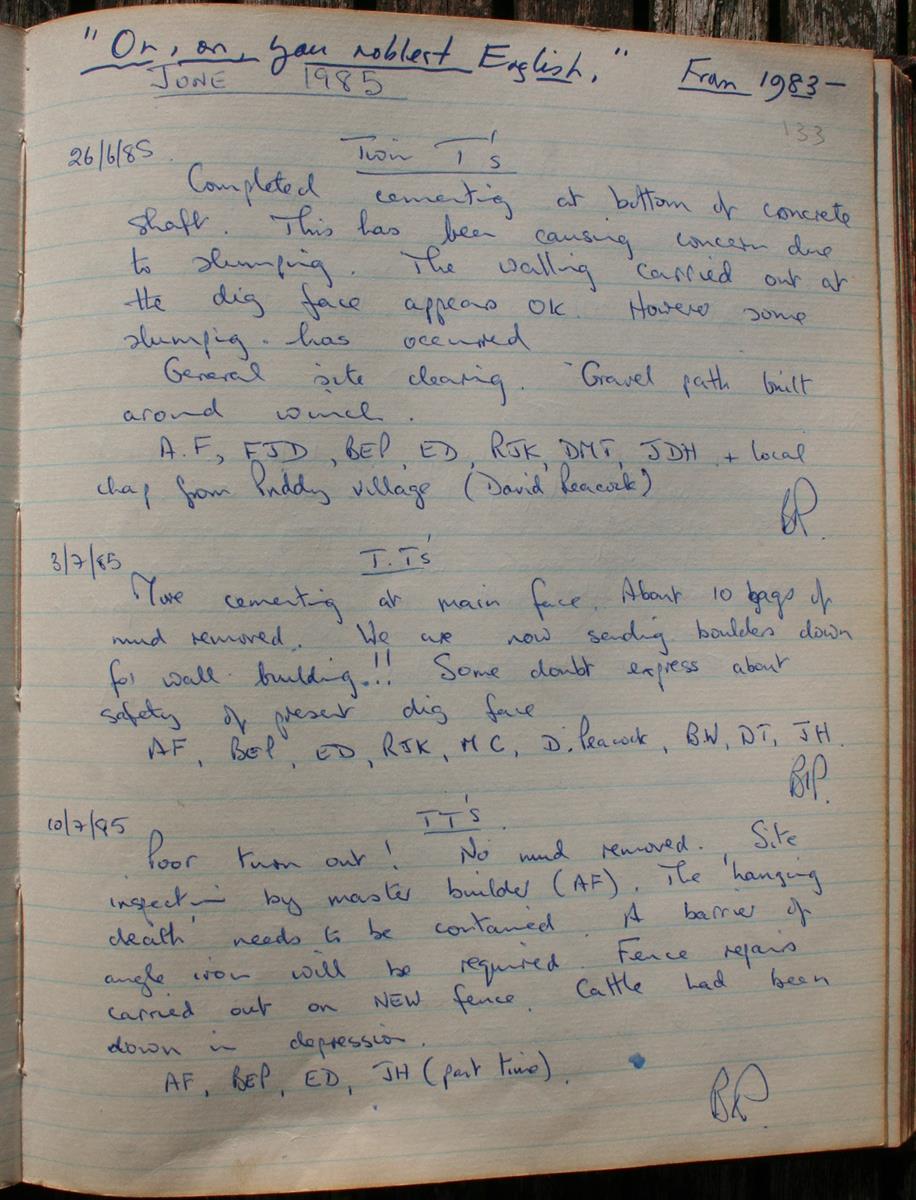 "On, on, you noblest English."
JUNE 1985
From 1983—
133
26/6/85
Twin T's
Completed cementing at bottom of concrete
shaft. This has been causing concern due
to slumping. The walling carried out at
the dig face appears OK. However some
slumping has occurred
General site clearing. Gravel path built
around winch.
A.F, FJD, BEP, ED, RJK, DMT, JDH + local
chap from Priddy village (David Peacock)
BP.
3/7/85
T.T's
More cementing at main face. About 10 bags of
mud removed. We are now sending boulders down
for wall building!!! Some doubt express about
safety of present dig face
AF, BEP, ED, RJK, MC, D. Peacock, BW, DT, JH.
BP.
10/7/85
TT's.
Poor turn out! No mud removed. Site
inspection by master builder (AF). The 'hanging
death' needs to be contained. A barrier of
angle iron will be required. Fence repairs
carried out on NEW fence. Cattle had been
down in depression.
AF, BEP, ED, JH (part time).
BP